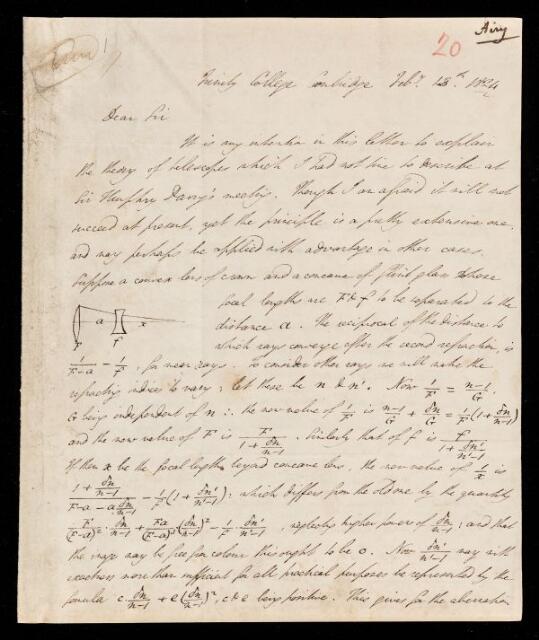 Airy
20
Trinity College Cambridge Feb.y 13.th 1824
Dear Sir
It is my intention in this letter to explain
the theory of telescopes which I had not time to describe at
Sir Humphry Davy's meeting. Though I am afraid it will not
succeed at present, yet the principle is a pretty extensive one,
and may perhaps be applied with advantage in other cases.
Suppose a convex lens of crown and a concave of flint glass whose
focal lengths are F & f to be separated to the
a x
distance a. The reciprocal of the distance to
F f
which rays converge after the second refraction, is
1/(F-a) - 1/f, for mean rays. To consider other rays we will make the
refracting indices to vary: let these be n & n'. Now 1/F = (n-1)/G
G being independent of n ∴ the new value of 1/F is (n-1)/G + δn/G = 1/F (1 + δn/(n-1))
and the new value of F is F/(1 + δn/(n-1)). Similarly that of f is f/(1 + δn'/(n'-1))
If then x be the focal length beyond concave lens, the new value of 1/x is
(1 + δn/(n-1))/(F-a-a.δn/(n-1)) - 1/f (1 + δn'/(n'-1)): which differs from the old one by the quantity
F/(F-a)². δn/(n-1) + Fa/(F-a)³ (δn/(n-1))² - 1/f. δn'/(n'-1), neglecting higher powers of δn/(n-1): and that
the rays may be free from colour this ought to be 0. Now δn'/(n'-1) may with
exactness more than sufficient for all practical purposes be represented by the
formula c.δn/(n-1) + e(δn/(n-1))², c & e being positive. This gives for the aberration